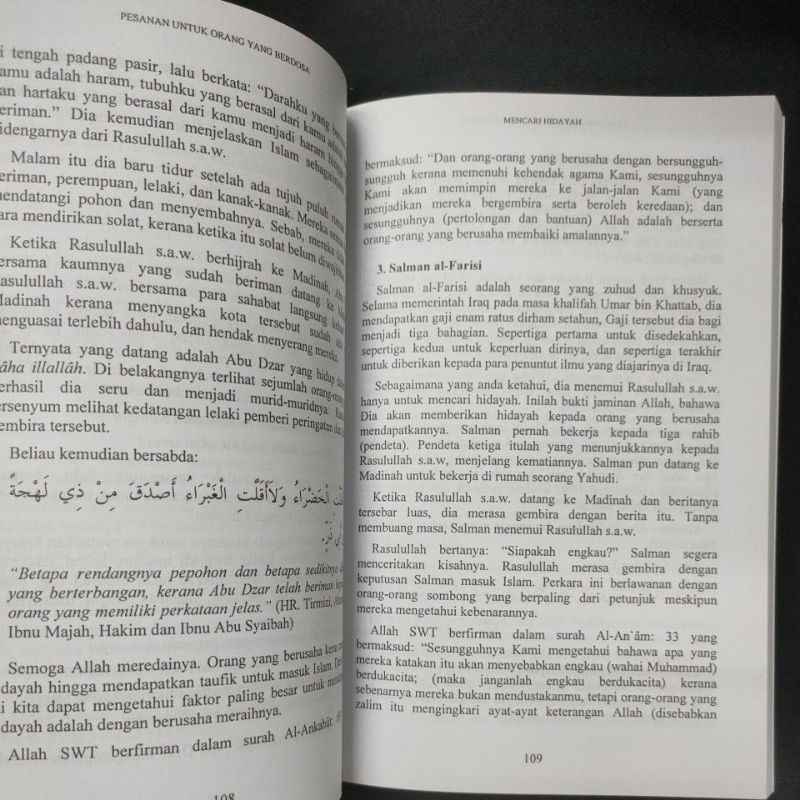 PESANAN UNTUK ORANG YANG BERDOSA
i tengah padang pasir, lalu berkata: "Darahku yang
kamu adalah haram, tubuhku yang berasal dari kamu
an hartaku yang berasal dari kamu menjadi haram
eriman." Dia kemudian menjelaskan Islam
idengarnya dari Rasulullah s.a.w.
Malam itu dia baru tidur setelah ada tujuh puluh
eriman, perempuan, lelaki, dan kanak-kanak. Mereka
mendatangi pohon dan menyembahnya. Sebab, mereka
ara mendirikan solat, kerana ketika itu solat belum
Ketika Rasulullah s.a.w. berhijrah ke Madinah,
ersama kaumnya yang sudah beriman datang ke
Rasulullah s.a.w. bersama para sahabat langsung
Madinah kerana menyangka kota tersebut sudah
menguasai terlebih dahulu, dan hendak menyerang mereka
Ternyata yang datang adalah Abu Dzar yang hidup
lâha illallâh. Di belakangnya terlihat sejumlah
erhasil dia seru dan menjadi murid-muridnya.
ersenyum melihat kedatangan lelaki pemberi peringatan dan
embira tersebut.
Beliau kemudian bersabda:
الْخَضْرَاءُ وَلاَأَقَلَّتِ الْغَبْرَاءُ أَصْدَقَ مِنْ ذِي لَهْجَةً
ذَرٍّ
"Betapa rendangnya pepohon dan betapa
yang berterbangan, kerana Abu Dzar telah beriman
orang yang memiliki perkataan jelas." (HR. Tirmizi,
Ibnu Majah, Hakim dan Ibnu Abu Syaibah)
Semoga Allah meredainya. Orang yang berusaha
dayah hingga mendapatkan taufik untuk masuk Islam
i kita dapat mengetahui faktor paling besar untuk
dayah adalah dengan berusaha meraihnya.
Allah SWT berfirman dalam surah Al-Ankabût:
108
MENCARI HIDAYAH
bermaksud: "Dan orang-orang yang berusaha dengan bersungguh-
sungguh kerana memenuhi kehendak agama Kami, sesungguhnya
Kami akan memimpin mereka ke jalan-jalan Kami (yang
menjadikan mereka bergembira serta beroleh keredaan); dan
sesungguhnya (pertolongan dan bantuan) Allah adalah berserta
orang-orang yang berusaha membaiki amalannya."
3. Salman al-Farisi
Salman al-Farisi adalah seorang yang zuhud dan khusyuk.
Selama memerintah Iraq pada masa khalifah Umar bin Khattab, dia
mendapatkan gaji enam ratus dirham setahun, Gaji tersebut dia bagi
menjadi tiga bahagian. Sepertiga pertama untuk disedekahkan,
sepertiga kedua untuk keperluan dirinya, dan sepertiga terakhir
untuk diberikan kepada para penuntut ilmu yang diajarinya di Iraq.
Sebagaimana yang anda ketahui, dia menemui Rasulullah s.a.w.
hanya untuk mencari hidayah. Inilah bukti jaminan Allah, bahawa
Dia akan memberikan hidayah kepada orang yang berusaha
mendapatkannya. Salman pernah bekerja kepada tiga rahib
(pendeta). Pendeta ketiga itulah yang menunjukkannya kepada
Rasulullah s.a.w, menjelang kematiannya. Salman pun datang ke
Madinah untuk bekerja di rumah seorang Yahudi.
Ketika Rasulullah s.a.w. datang ke Madinah dan beritanya
tersebar luas, dia merasa gembira dengan berita itu. Tanpa
membuang masa, Salman menemui Rasulullah s.a.w.
Rasulullah bertanya: "Siapakah engkau?" Salman segera
menceritakan kisahnya. Rasulullah merasa gembira dengan
keputusan Salman masuk Islam. Perkara ini berlawanan dengan
orang-orang sombong yang berpaling dari petunjuk meskipun
mereka mengetahui kebenarannya.
Allah SWT berfirman dalam surah Al-An`âm: 33 yang
bermaksud: "Sesungguhnya Kami mengetahui bahawa apa yang
mereka katakan itu akan menyebabkan engkau (wahai Muhammad)
berdukacita; (maka janganlah engkau berdukacita) kerana
sebenarnya mereka bukan mendustakanmu, tetapi orang-orang yang
zalim itu mengingkari ayat-ayat keterangan Allah (disebabkan
109